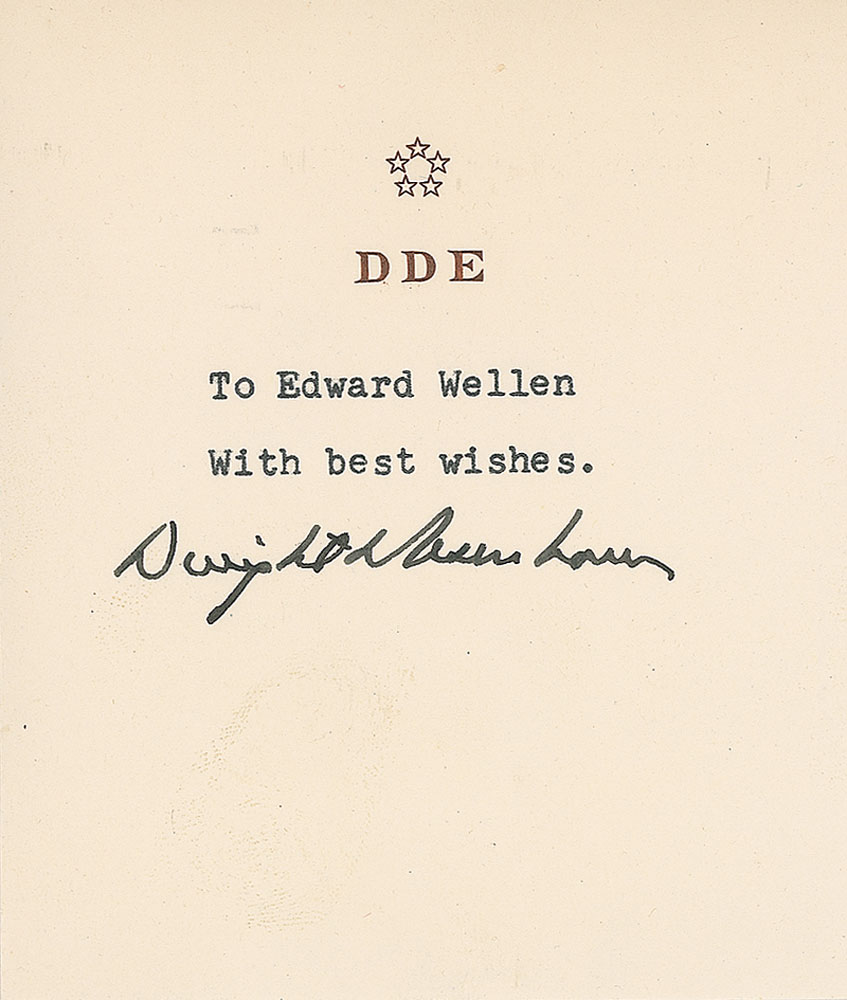 DDE
To Edward Wellen
With best wishes.
Dwight D Eisenhower